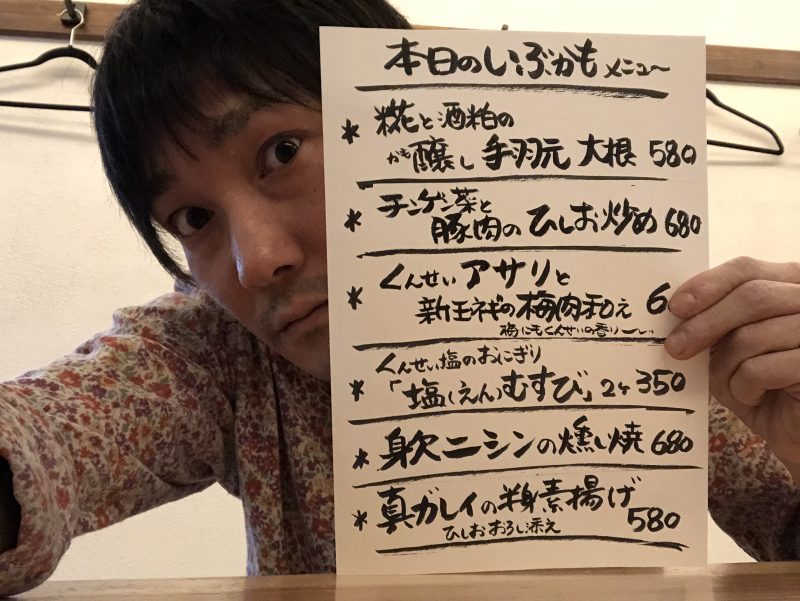 本日のいぶかもメニュ〜
* 糀と酒粕の
かも醸し 手羽元 大根 580
* チンゲン菜と
豚肉の ひしお炒め 680
* くんせい アサリと
新玉ネギの梅肉和え 6
梅にもくんせいの香り〜い
* くんせい塩のおにぎり
「塩(えん)むすび」2ケ 350
* 身欠ニシンの燻し焼 680
* 真ガレイの半身素揚げ
ひしおおろし添え 580